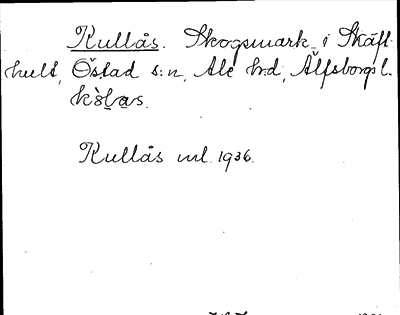 Kullås. Skogsmark i Skäft-
hult, Östad s:n, Ale hd, Älfsborgs l.
Kullås ml. 1936.